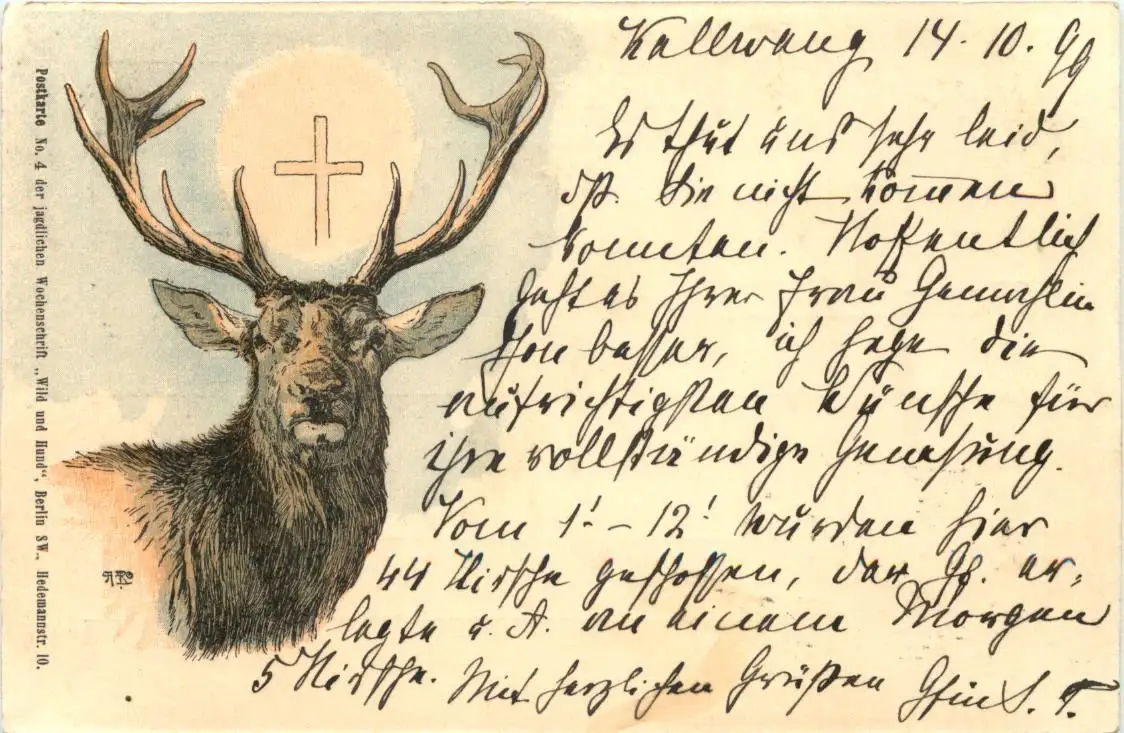 Postkarte No. 4 der jagdlichen Wochenschrift „Wild und Hund“, Berlin SW., Hedemannstr. 10.
Kallwang 14. 10. 99
Es thut uns sehr leid,
dß. Sie nicht kommen
konnten. Hoffentlich
geht es Ihrer Frau Gemahlin
schon besser, ich hege die
aufrichtigsten Wünsche für
ihre vollständige Genesung.
Vom 1' – 12' wurden hier
44 Hirsche geschossen, der er-
legte u. A. an einem Morgen
5 Hirsche. Mit herzlichen Grüßen